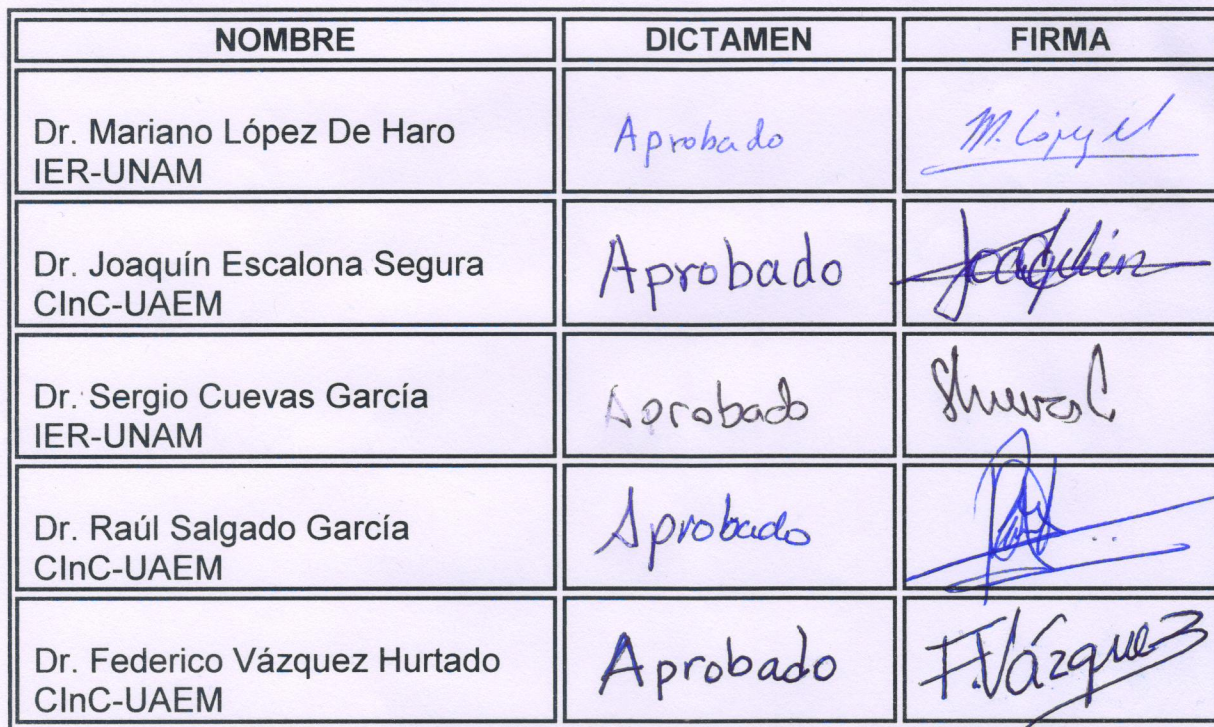 NOMBRE DICTAMEN FIRMA
Dr. Mariano López De Haro
IER-UNAM
Aprobado
M. López
Dr. Joaquín Escalona Segura
CInC-UAEM
Aprobado
Joaquín
Dr. Sergio Cuevas García
IER-UNAM
Aprobado
Dr. Raúl Salgado García
CInC-UAEM
Aprobado
Dr. Federico Vázquez Hurtado
CInC-UAEM
Aprobado
F. Vázquez